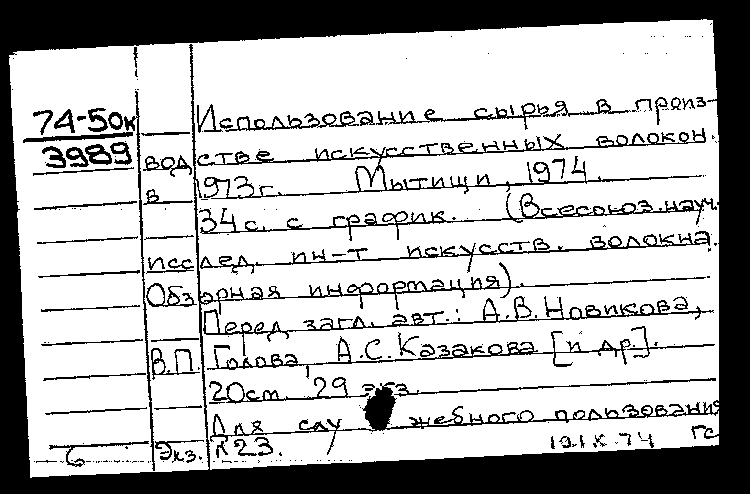 74-50к
3989
Использование сырья в произ-
водстве искусственных волокон.
в 1973г. Мытищи, 1974.
34с. с график. (Всесоюз.науч.
исслед. ин-т искусств. волокна.
Обзорная информация).
Перед загл. авт.: А.В.Новикова,
В.П. Голова, А.С.Казакова [и др.].
20см. 29 экз.
Для служебного пользования
6 Экз. №23. 191.К.74 Гс